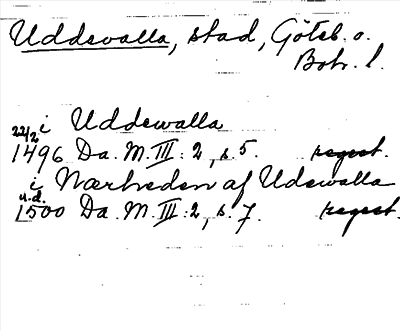 Uddevalla, stad, Göteb. o.
Boh. l.
22/2 i Uddewalla
1496 Da. M. III: 2, s. 5. regest.
i Nærheden af Udewalla
u.d.
1500 Da. M. III: 2, s. 7. regest.